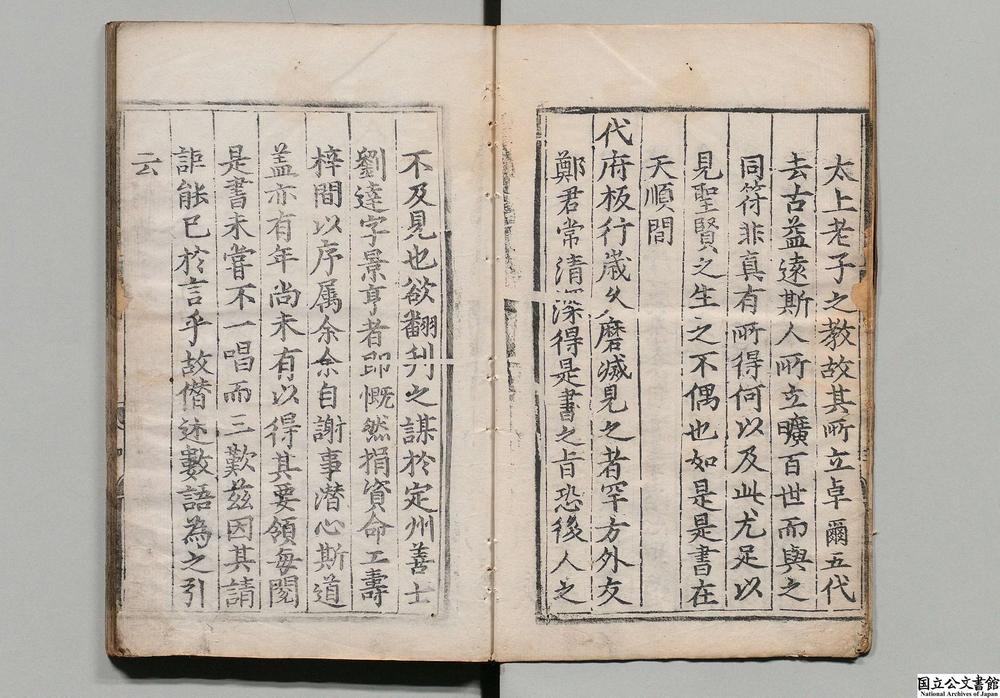 太上老子之教故其所立卓爾五代
去古益遠斯人所立曠百世而與之
同符非真有所得何以及此尤足以
見聖賢之生之不偶也如是是書在
天順間
代府板行歲久磨滅見之者罕方外友
鄭君常清深得是書之旨恐後人之
不及見也欲翻刊之謀於定州善士
劉達字景亨者即慨然捐資命工壽
梓間以序属余余自謝事潛心斯道
盖亦有年尚未有以得其要領每閱
是書未嘗不一唱而三歎兹因其請
詎能已於言乎故僣述數語為之引
云
国立公文書館
National Archives of Japan